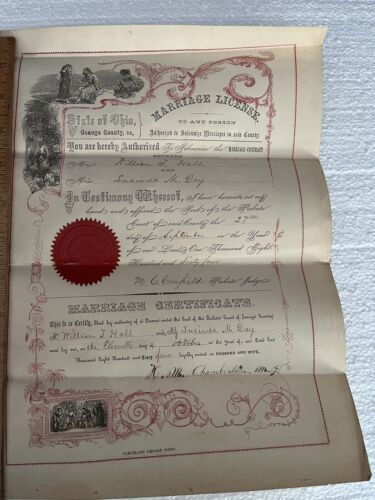 MARRIAGE LICENSE.
State of Ohio,
Geauga County, ss,
TO ANY PERSON
Authorized to Solemnize Marriages in said County:
You are hereby Authorized To Solemnize the MARRIAGE CONTRACT
BETWEEN
Mr William F. Hall
AND
Miss Lucinda M. Day
In Testimony Whereof, I have hereunto set my
hand and affixed the Seal of the Probate
Court of said County the 27th
day of September in the Year
of our Lord One Thousand Eight
Hundred and Sixty four
M. C. Canfield Probate Judge
MARRIAGE CERTIFICATE.
This is to Certify, that by authority of a License under the Seal of the Probate Court of Geauga County
Mr William F. Hall and Lucinda M. Day
were by me, on the Eleventh day of October in the Year of our Lord One
Thousand Eight Hundred and Sixty four legally united as HUSBAND AND WIFE.
Chamberlain